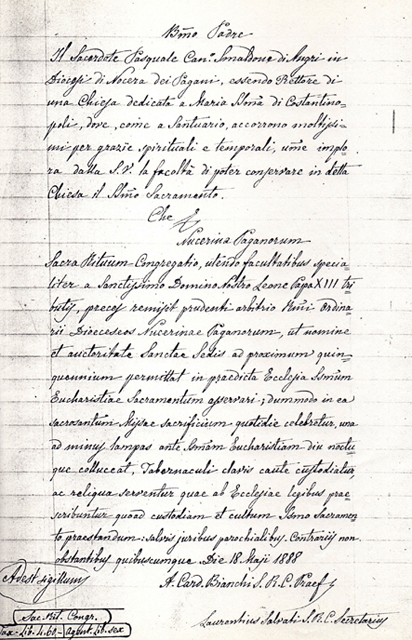 Bmo Padre
Il Sacerdote Pasquale Can.º Smaldone di Angri in
Diocesi di Nocera dei Pagani, essendo Rettore di
una Chiesa dedicata a Maria SSma di Costantino-
poli, dove, come a Santuario, accorrono moltissi-
mi per grazie spirituali e temporali, ume implo-
ra dalla S.V. la facoltà di poter conservare in detta
Chiesa il SSmo Sacramento.
Che
Nucerina Paganorum
Sacra Rituum Congregatio, utendo facultatibus specia-
liter a Sanctissimo Domino Nostro Leone Papa XIII tri-
butis, preces remisit prudenti arbitrio Rmi Ordina-
rii Dioeceseos Nucerinae Paganorum, ut nomine
et auctoritate Sanctae Sedis ad proximum quin-
quennium permittat in praedicta Ecclesia SSmum
Eucharistiae Sacramentum asservari; dummodo in ea
sacrosantum Missae sacrificium quotidie celebretur, una
ad minus lampas ante SSmam Eucharistiam diu noctu-
que colluceat, Tabernaculi clavis caute custodiatur,
ac reliqua serventur quae ab Ecclesiae legibus prae-
scribuntur quoad custodiam et cultum SSmo Sacramen-
to praestandum: salvis juribus parochialibus. Contrariis non
obstantibus quibuscumque. Die 18 Maji 1888
Adest sigillum
A. Card. Bianchi S. R. C. Praef.
Sac. Rit. Congr.
Tax - Lib. 4.60 - Agent. Lib. sex
Laurentius Salvati S. R. C. Secretarius